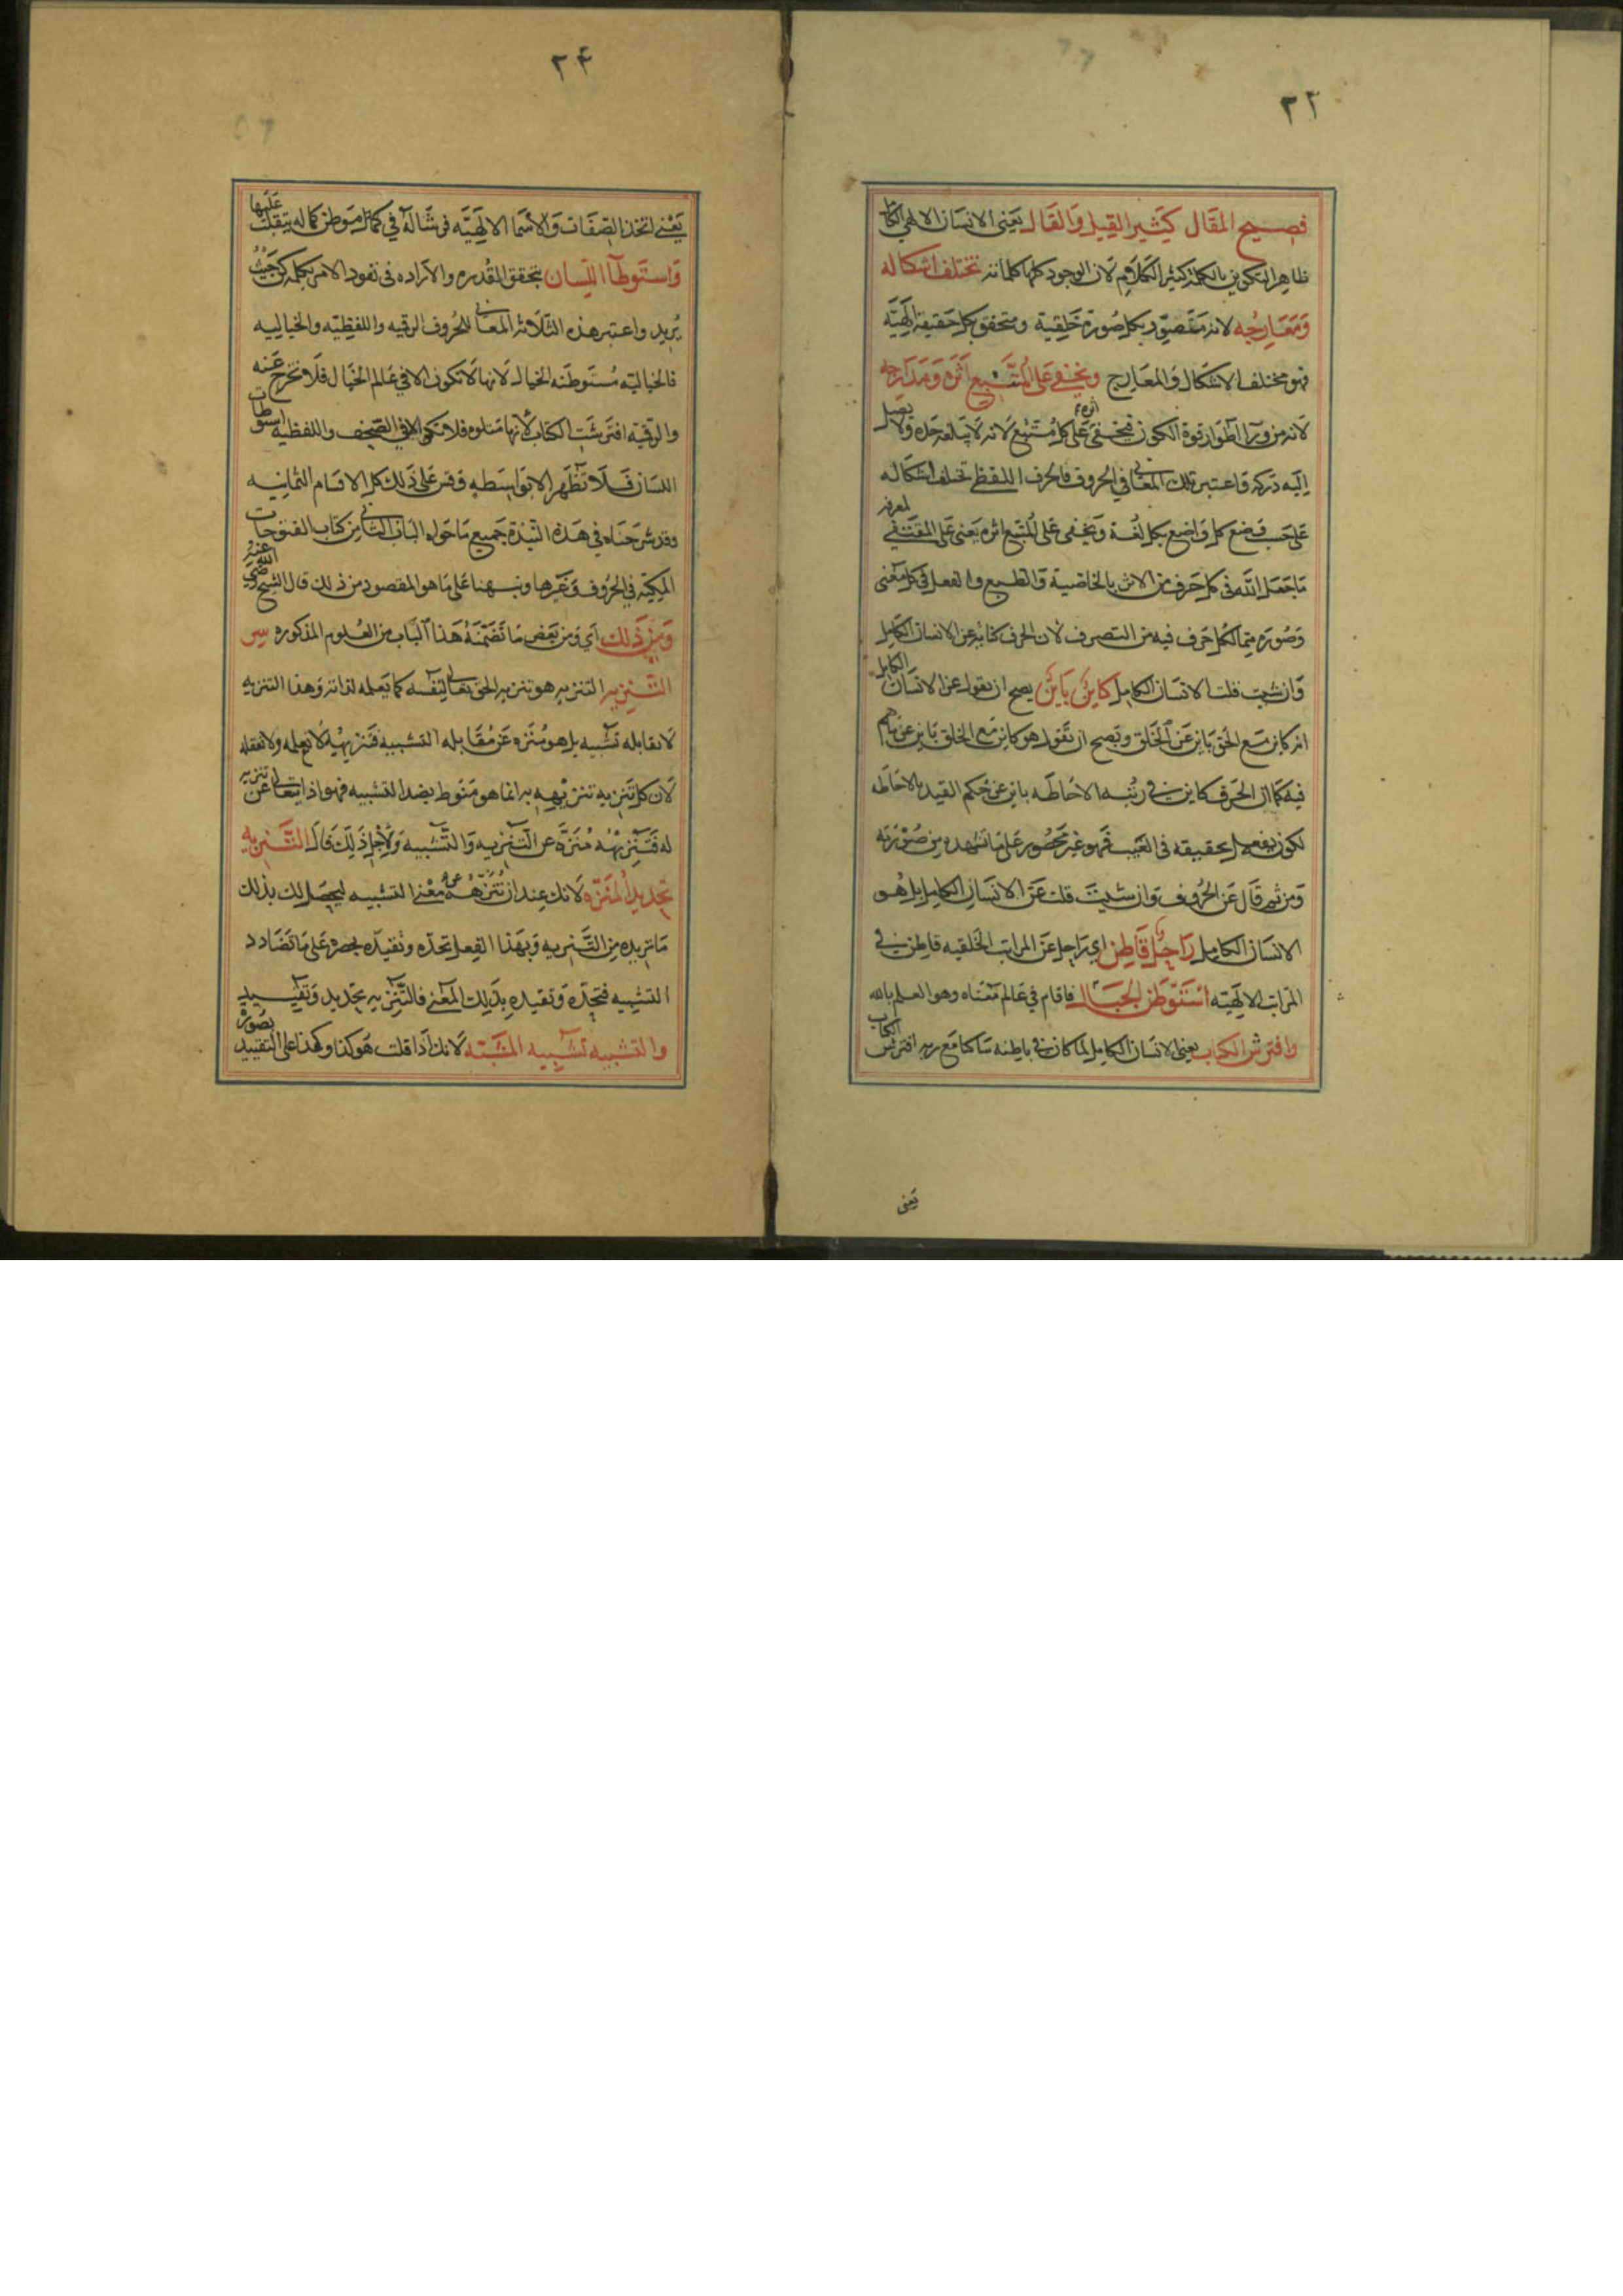 ٢٣
فصيح المقال كثير القيل والقال يعنى الانسان الالهي الكامل
ظاهر التكوين بالكلمة كثير الكلام لان الوجود كلها كلماته تختلف اشكاله
ومعارجه لانه متصور بكل صورة خلقية ومتحقق بكل حقيقة الهيّة
فهو مختلف الاشكال والمعارج ويخفى على المتتبع اثره ومدارجه
لانه من ورآ اطوار قوة الكون فيخفى اثره على كل متتبع لانه لا يبلغ حده ولا يصل
اليه دركه فاعتبر تلك المعاني في الحروف فالحرف اللفظي تختلف اشكاله
على حسب وضع كل واضع بكل لغة ويخفى على المتتبع اثره يعنى على المقتفي لمعرفة
ما جعل الله فى كل حرف من الاثر بالخاصية والطبع والفعل في كل معنى
وصوره مما لكل حرف فيه من التصرف لان الحرف كناية عن الانسان الكامل
وان شيت قلت الانسان الكامل كاين باين يصح ان يقول عن الانسان الكامل
انه كاين مع الحق باين عن الخلق ويصح ان تقول هو كاين مع الخلق باين عن ما هم
فيه كما ان الحرف كاين في رتبه الاحاطه باين عن حكم القيد بالاحاطه
لكونه يفعل بحقيقه فى الغيب فهو غير محصور على ما تشهده من صورته
ومن ثم قال عن الحروف وان شيت قلت عن الانسان الكامل بل هو
الانسان الكامل راحل قاطن اي راحل عن المراتب الخلقيه قاطن في
المراتب الالهيّه استوطن الخيال فاقام في عالم معناه وهو العلم بالله
وافترش الكتاب يعنى الانسان الكامل لما كان في باطنه ساكنا مع ربه افترش الكتاب
يعنى
٢٤
يعني اتخذ الصفات والاسما الالهيّه فرشا له في كل موطن كماله يتقلب عليها
واستوطا اللسان بتحقق القدره والاراده فى نفود الامر بكلمة كن حيث
يريد واعتبر هذه الثلاثه المعاني للحروف الرقيه واللفظيّه والخياليه
فالخياليّه مستوطنه الخيال لانها لا تكون الا في عالم الخيال فلا تخرج عنه
والرقيه افترشت الكتاب لانها متلوه فلا تكون الا في الصحف واللفظيه استوطات
اللسان فلا تظهر الا بواسطه وقس على ذلك كل الاقسام الثمانيه
وقد شرحناه في هذه النبذة جميع ما حواه الباب الثاني من كتاب الفتوحات
المكيّه في الحروف وغيرها ونبهنا على ما هو المقصود من ذلك قال الشيخ رضي الله عنه
ومن ذلك اي ومن بعض ما تضمنه هذا الباب من العلوم المذكوره سر
التنزيه التنزيه هو تنزيه الحق تعالى لنفسه كما يعلمه لذاته وهذا التنزيه
لا يقابله تشبيه بل هو منزه عن مقابله التشبيه فتنزيهه لا نعلمه ولا نعقله
لان كل تنزيه تنزيهه به انما هو منوط بضد التشبيه فهو اذا يتعالى عن تنزيه
له فتنزيهه منزه عن التنزيه والتشبيه ولاجل ذلك قال التنزيه
تحديد المنزه لانك عند ان تنزهه عن معنى التشبيه ليحصل لك بذلك
ما تريده من التنزيه وبهذا الفعل تحده وتقيده بحصره على ما تضادد
التشبيه فتحده وتقيده بذلك المعنى فالتنزيه تحديد وتقييد
والتشبيه تشبيه المشبه لانك اذا قلت هو كذا وكذا على التقييد بصوره